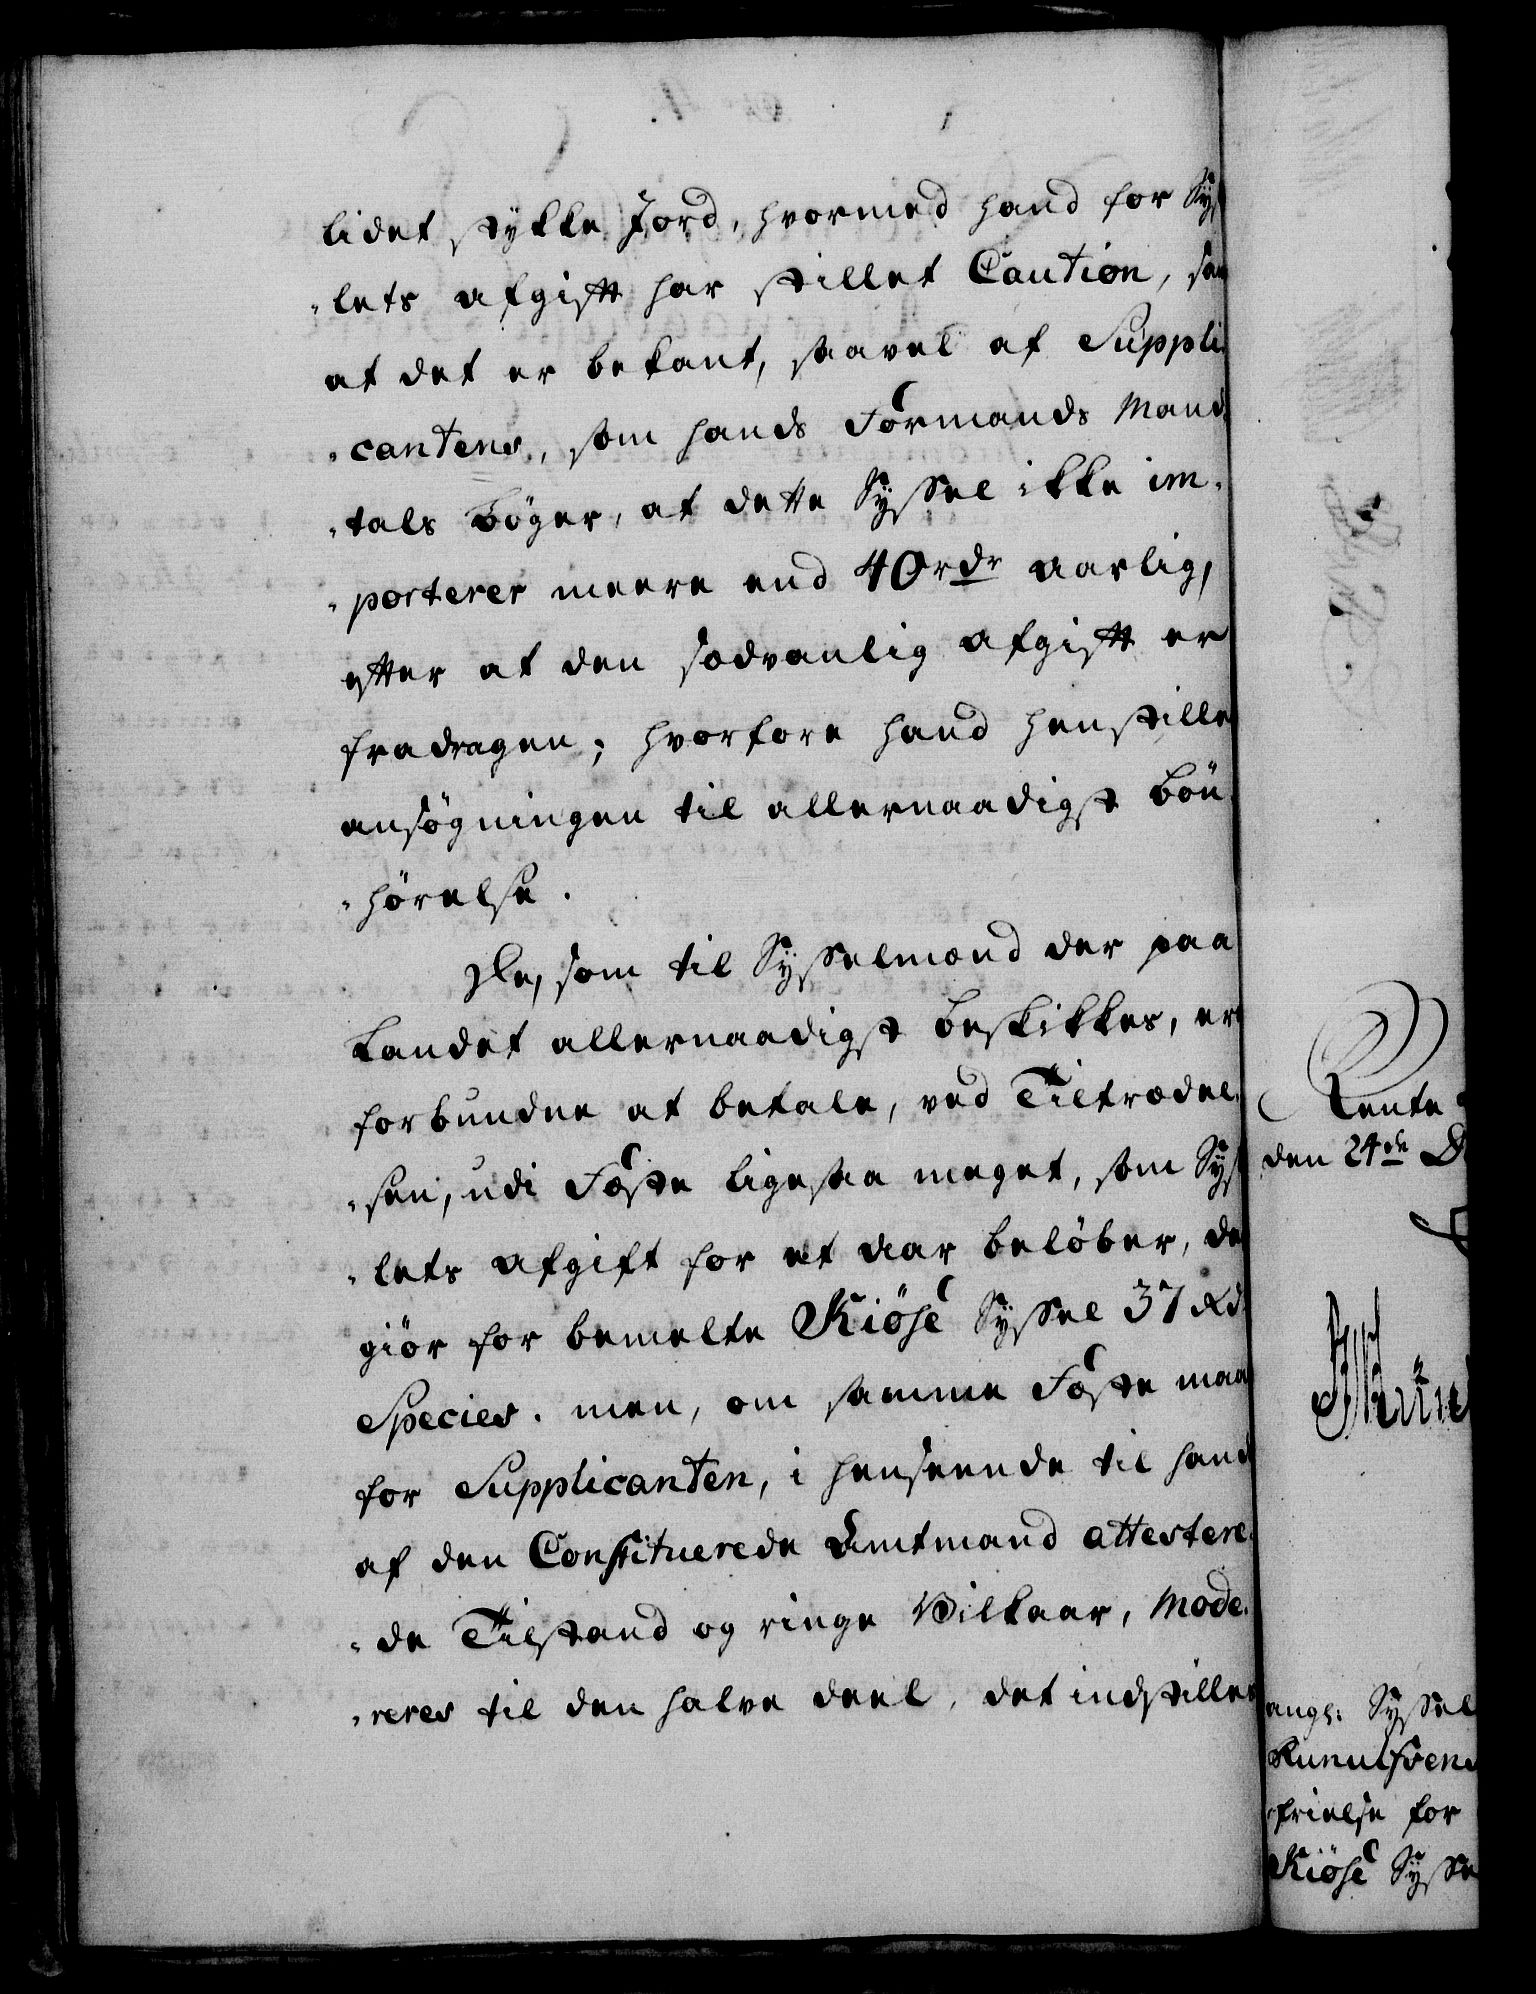 lidet stykke Jord, hvormed hand for Sys
"lets afgift har stillet Caution, sam
at det er bekant, saavel af Suppli-
"cantens, som hands Formands Mand-
"tals bøger, at dette Syssel ikke im-
"porterer meere end 40 rdr aarlig,
efter at den sædvanlig afgift er
fradragen; hvorfore hand henstiller
ansøgningen til allernaadigst bøn-
"hørelse.
Alle, som til Sysselmænd der paa
Landet allernaadigst beskikkes, ere
forbundne at betale, ved Tiltrædel-
"sen, udi Fæste ligesaa meget, som Sys
"lets afgift for et aar beløber, det
giør for bemelte Kiøse Syssel 37 Rd
Species. men, om samme Fæste maa
for Supplicanten, i henseende til hands
af den Constituerede Amtmand attestere-
"de Tilstand og ringe Vilkaar, Mode-
"reres til den halve deel, det indstilles
Rente
den 24de D
angl: Syssel
Runulfsen
frielse for
Kiøse Sysse